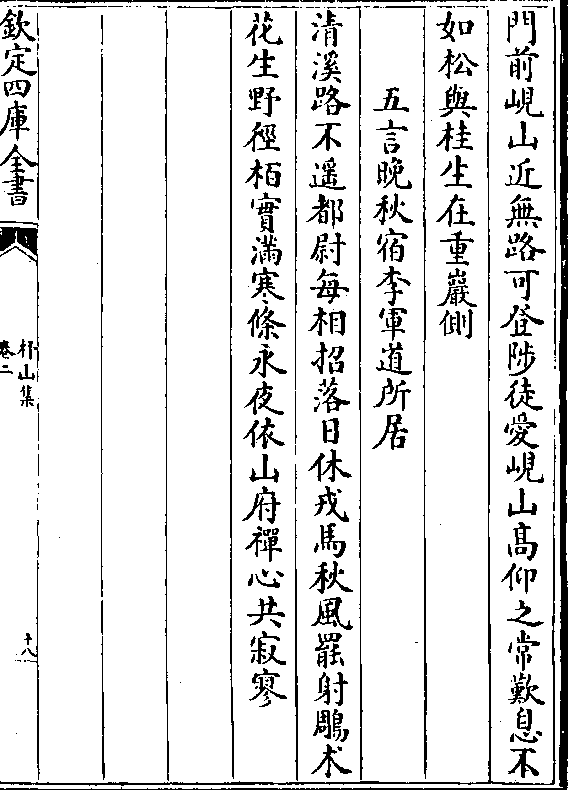 門前峴山近無路可登陟徒愛峴山髙仰之常歎息不
如松與桂生在重巖側
五言晚秋宿李軍道所居
清溪路不遥都尉每相招落日休戎馬秋風罷射鵰术
花生野徑栢實滿寒條永夜依山府禪心共寂寥
欽定四庫全書
杼山集
卷二
十八